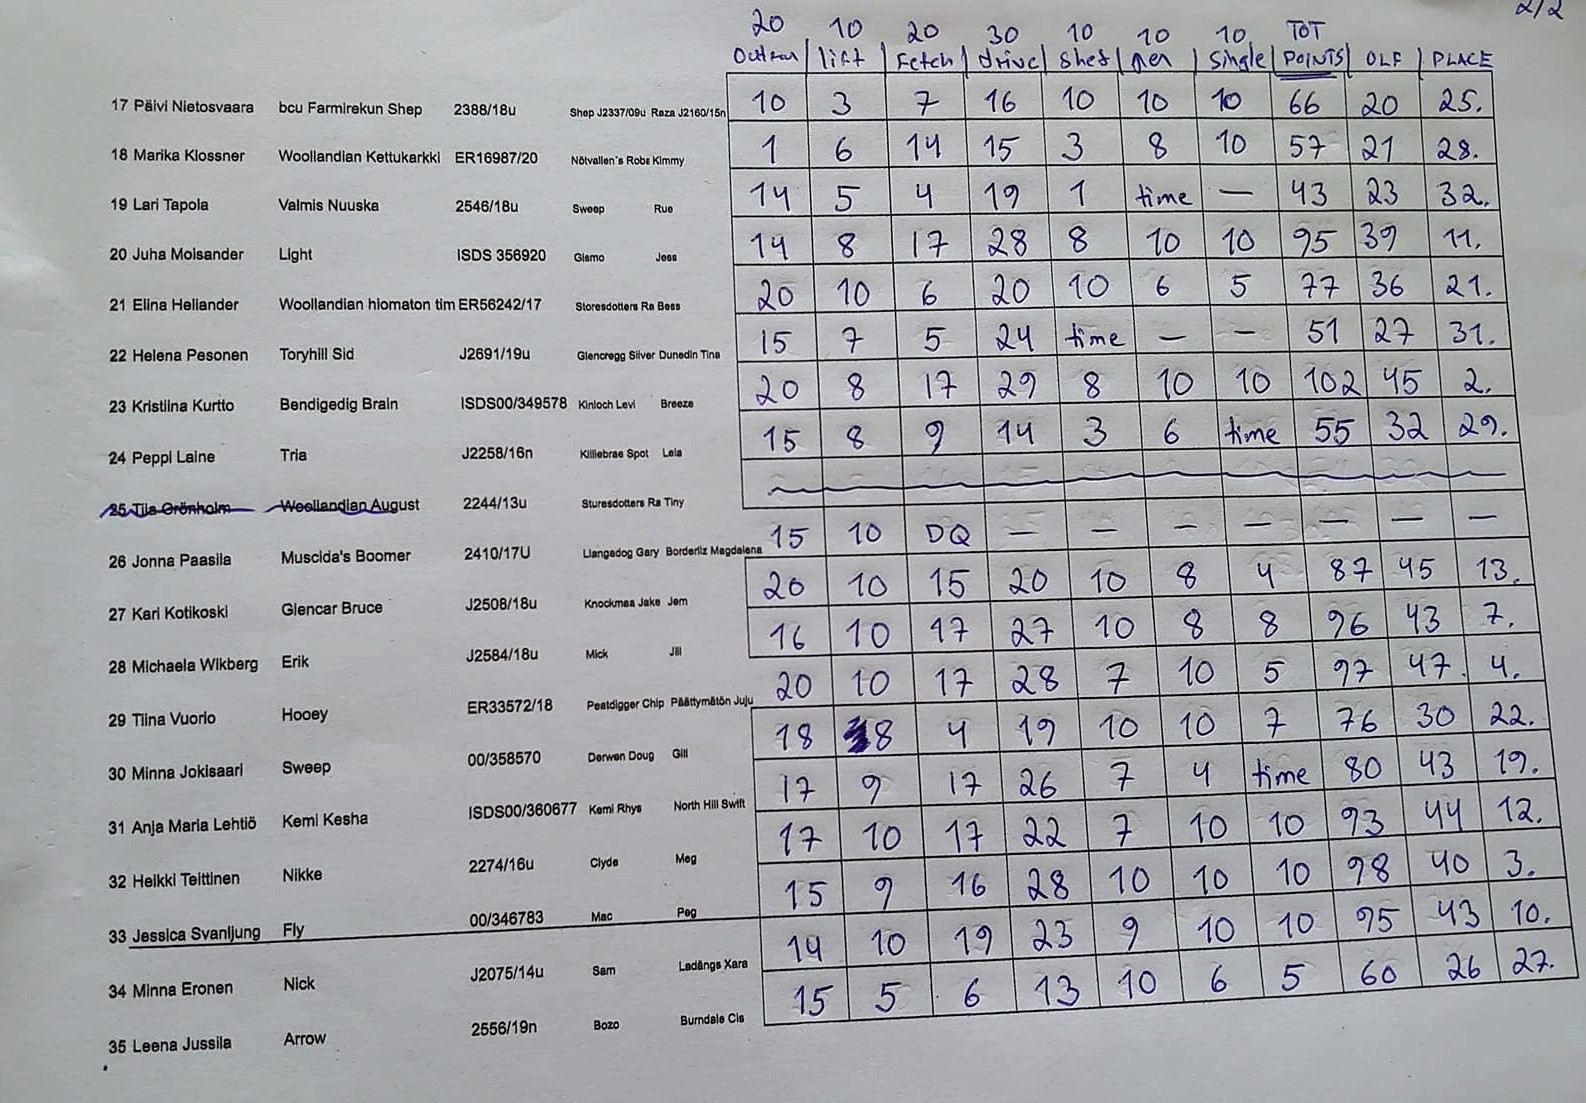 2/2
20 10 20 30 10 10 10 TOT
Outrun lift Fetch drive shed pen single POINTS OLF PLACE
17 Päivi Nietosvaara bcu Farmirekun Shep 2388/18u Shep J2337/09u Raza J2160/15n 10 3 7 16 10 10 10 66 20 25.
18 Marika Klossner Woollandian Kettukarkki ER16987/20 Nötvallen's Robs Kimmy 1 6 14 15 3 8 10 57 21 28.
19 Lari Tapola Valmis Nuuska 2546/18u Sweep Rue 14 5 4 19 1 time — 43 23 32.
20 Juha Moisander Light ISDS 356920 Gismo Jess 14 8 17 28 8 10 10 95 39 11.
21 Elina Heliander Woollandian hiomaton tim ER56242/17 Storesdotters Ra Bess 20 10 6 20 10 6 5 77 36 21.
22 Helena Pesonen Toryhill Sid J2691/19u Glencregg Silver Dunedin Tina 15 7 5 24 time — — 51 27 31.
23 Kristiina Kurtto Bendigedig Brain ISDS00/349578 Kinloch Levi Breeze 20 8 17 29 8 10 10 102 45 2.
24 Peppi Laine Tria J2258/16n Killiebrae Spot Lela 15 8 9 14 3 6 time 55 32 29.
25 Tiia Grönholm Woollandian August 2244/13u Sturesdotters Ra Tiny
26 Jonna Paasila Muscida's Boomer 2410/17U Llangadog Gary Borderliz Magdalena 15 10 DQ — — — — — — —
27 Kari Kotikoski Glencar Bruce J2508/18u Knockmaa Jake Jem 20 10 15 20 10 8 4 87 45 13.
28 Michaela Wikberg Erik J2584/18u Mick Jill 16 10 17 27 10 8 8 96 43 7.
29 Tiina Vuorio Hooey ER33572/18 Peatdigger Chip Päättymätön Juju 20 10 17 28 7 10 5 97 47 4.
30 Minna Jokisaari Sweep 00/358570 Derwen Doug Gill 18 8 4 19 10 10 7 76 30 22.
31 Anja Maria Lehtiö Kemi Kesha ISDS00/360677 Kemi Rhys North Hill Swift 17 9 17 26 7 4 time 80 43 19.
32 Heikki Teittinen Nikke 2274/16u Clyde Meg 17 10 17 22 7 10 10 93 44 12.
33 Jessica Svanljung Fly 00/346783 Mac Peg 15 9 16 28 10 10 10 98 40 3.
34 Minna Eronen Nick J2075/14u Sam Ladängs Xara 14 10 19 23 9 10 10 95 43 10.
35 Leena Jussila Arrow 2556/19n Bozo Burndale Cis 15 5 6 13 10 6 5 60 26 27.